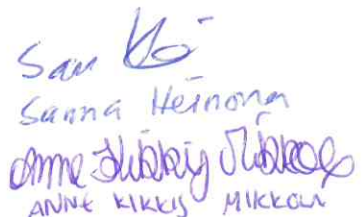 San
Sanna Heinonen
Anne Kikkij Mikkola
ANNE KIKKIJ MIKKOLA